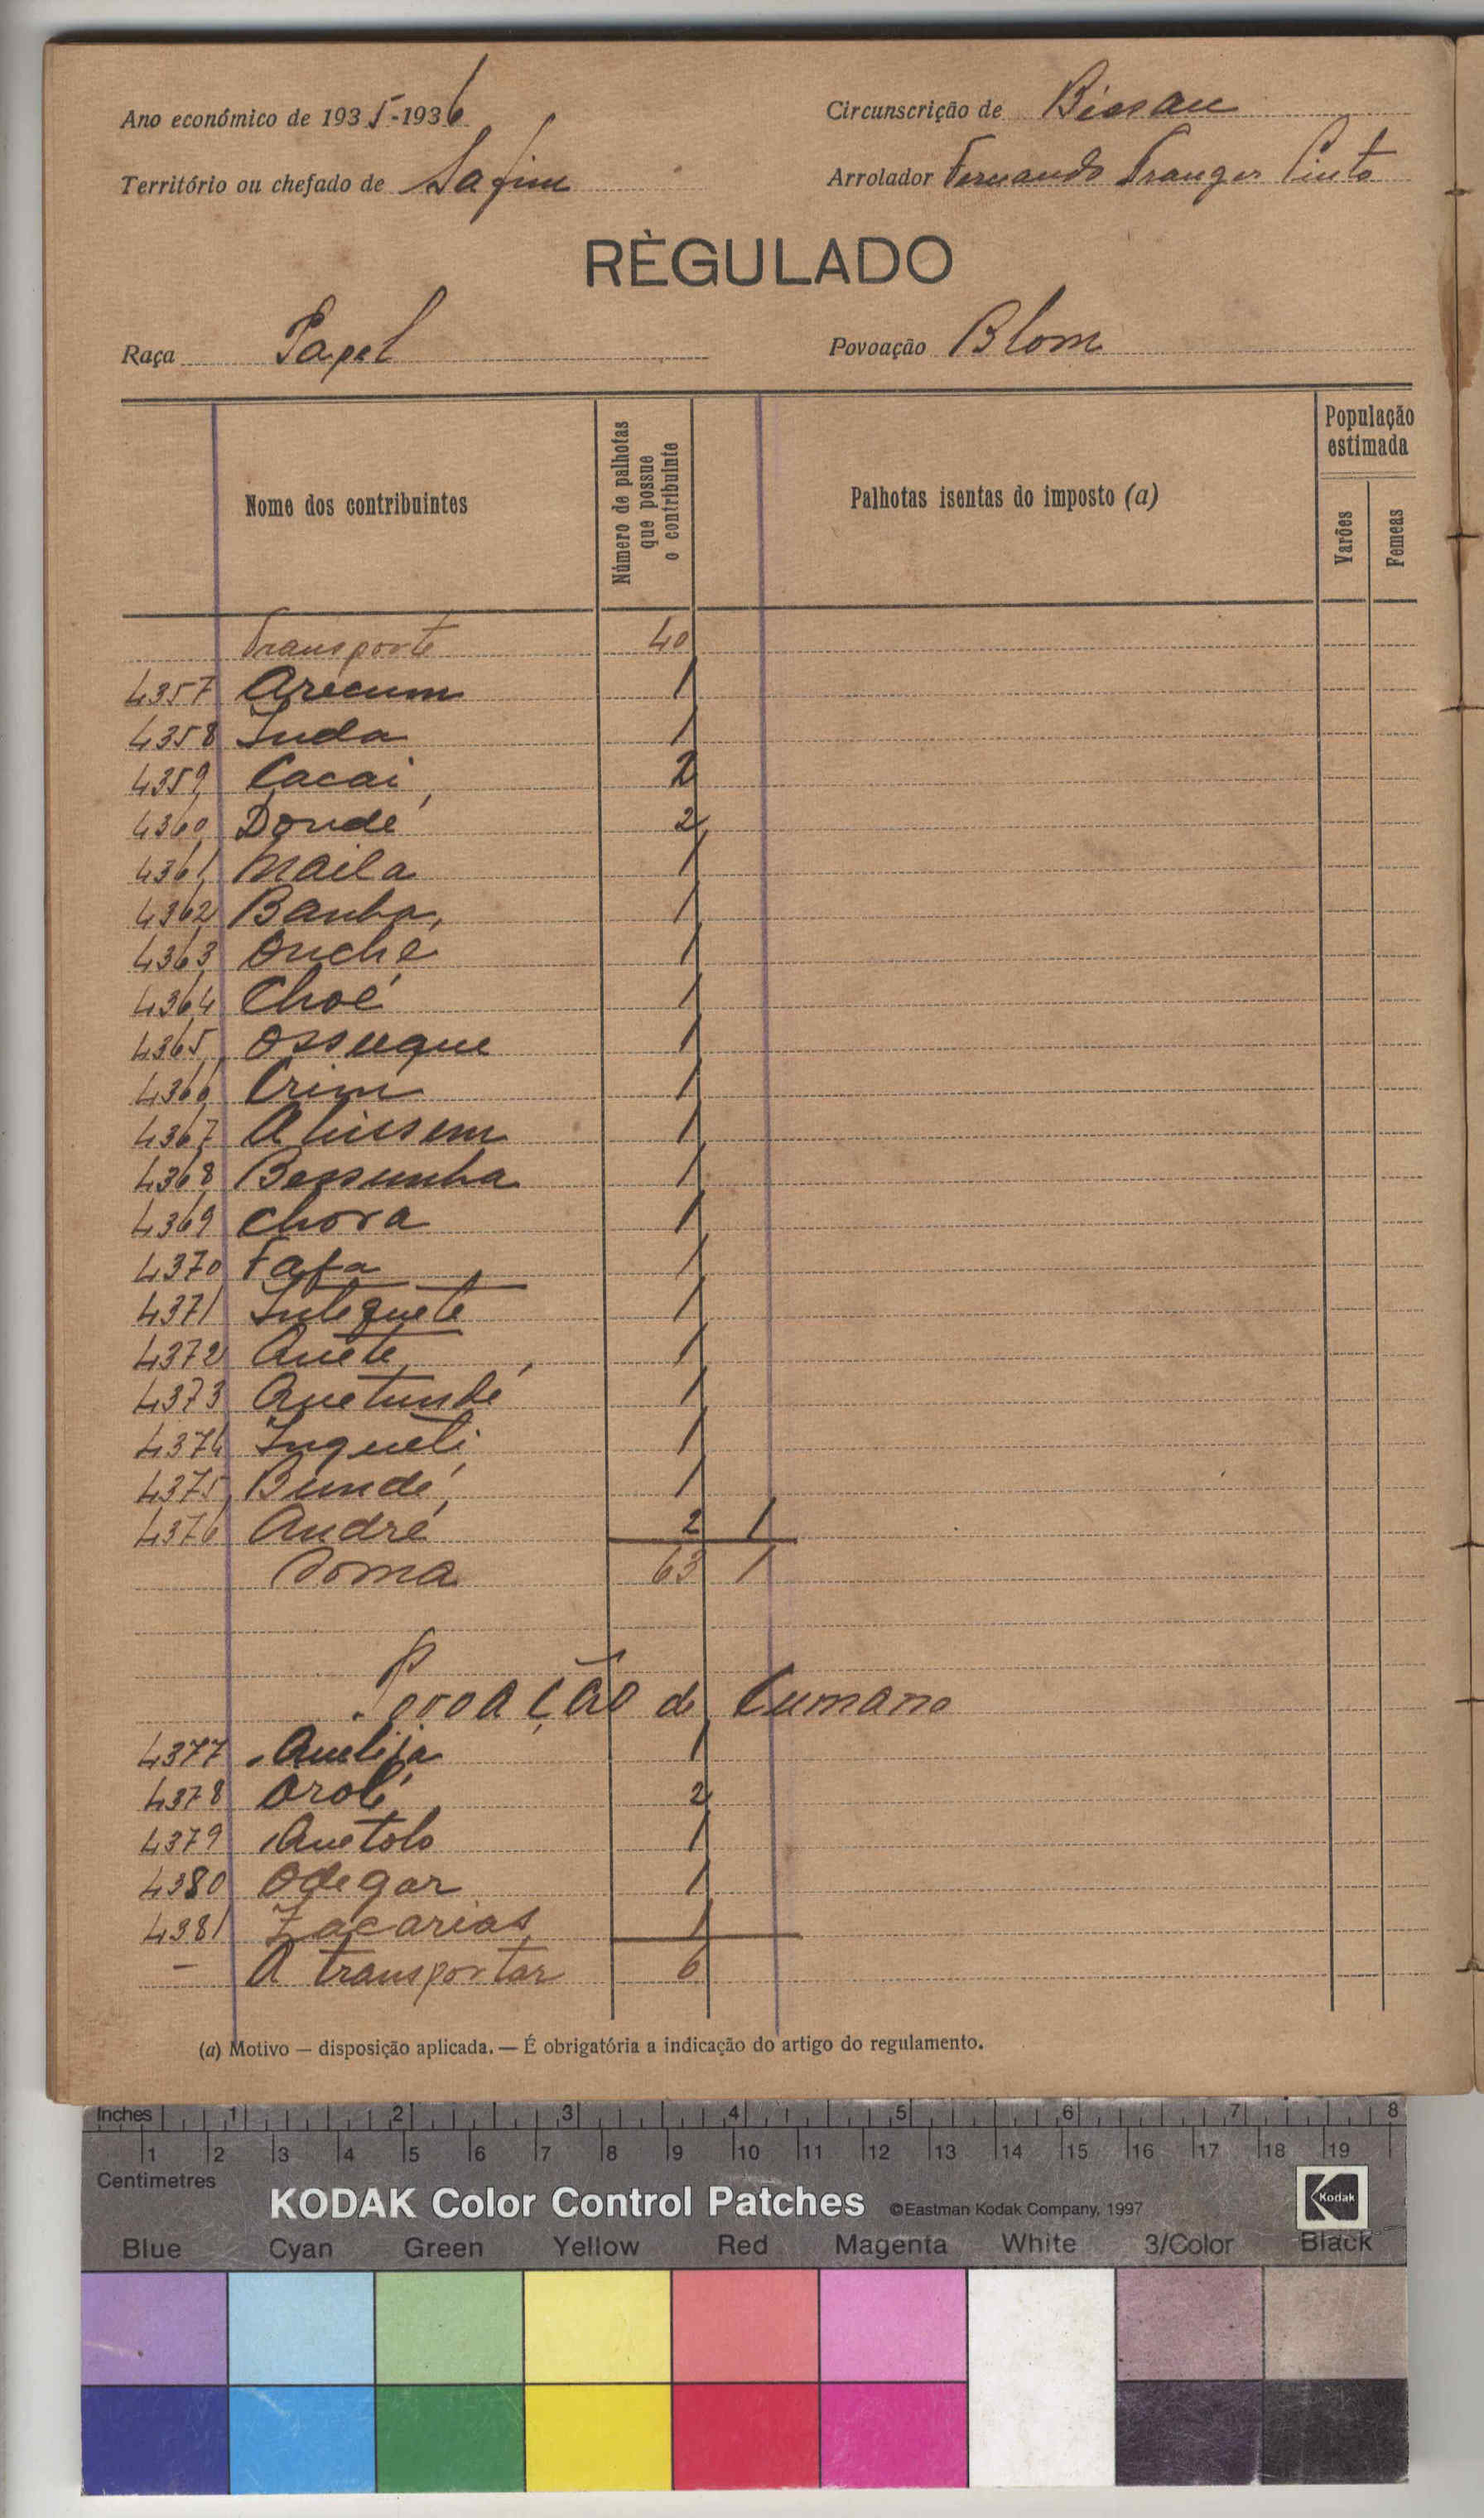 Ano económico de 1935-1936
Circunscrição de Bissau
Território ou chefado de Safim
Arrolador Fernando Pinto
RÈGULADO
Raça Papel
Povoação Blom
Nome dos contribuintes
Número de palhotas que possue o contribuinte
Palhotas isentas do imposto (a)
População estimada
Varões
Femeas
Transporte 40
4357 Arecum 1
4358 Inda 1
4359 Cacai 2
4360 Dondé 2
4361 Maila 1
4362 Banha 1
4363 Onche 1
4364 Choé 1
4365 Ossuque 1
4366 Crim 1
4367 1
4368 Bessunha 1
4369 Chora 1
4370 Fafa 1
4371 1
4372 Quete 1
4373 1
4374 Inqueti 1
4375 Bundé 1
4376 André 2 1
Soma 63 1
Povoação de Cumano
4377 1
4378 Orolé 2
4379 Quetolo 1
4380 Odegar 1
4381 Zacarias 1
- A transportar 6
(a) Motivo — disposição aplicada. — É obrigatória a indicação do artigo do regulamento.
Inches 1 2 3 4 5 6 7 8
1 2 3 4 5 6 7 8 9 10 11 12 13 14 15 16 17 18 19
Centimetres
KODAK Color Control Patches ©Eastman Kodak Company, 1997 Kodak
Blue Cyan Green Yellow Red Magenta White 3/Color Black